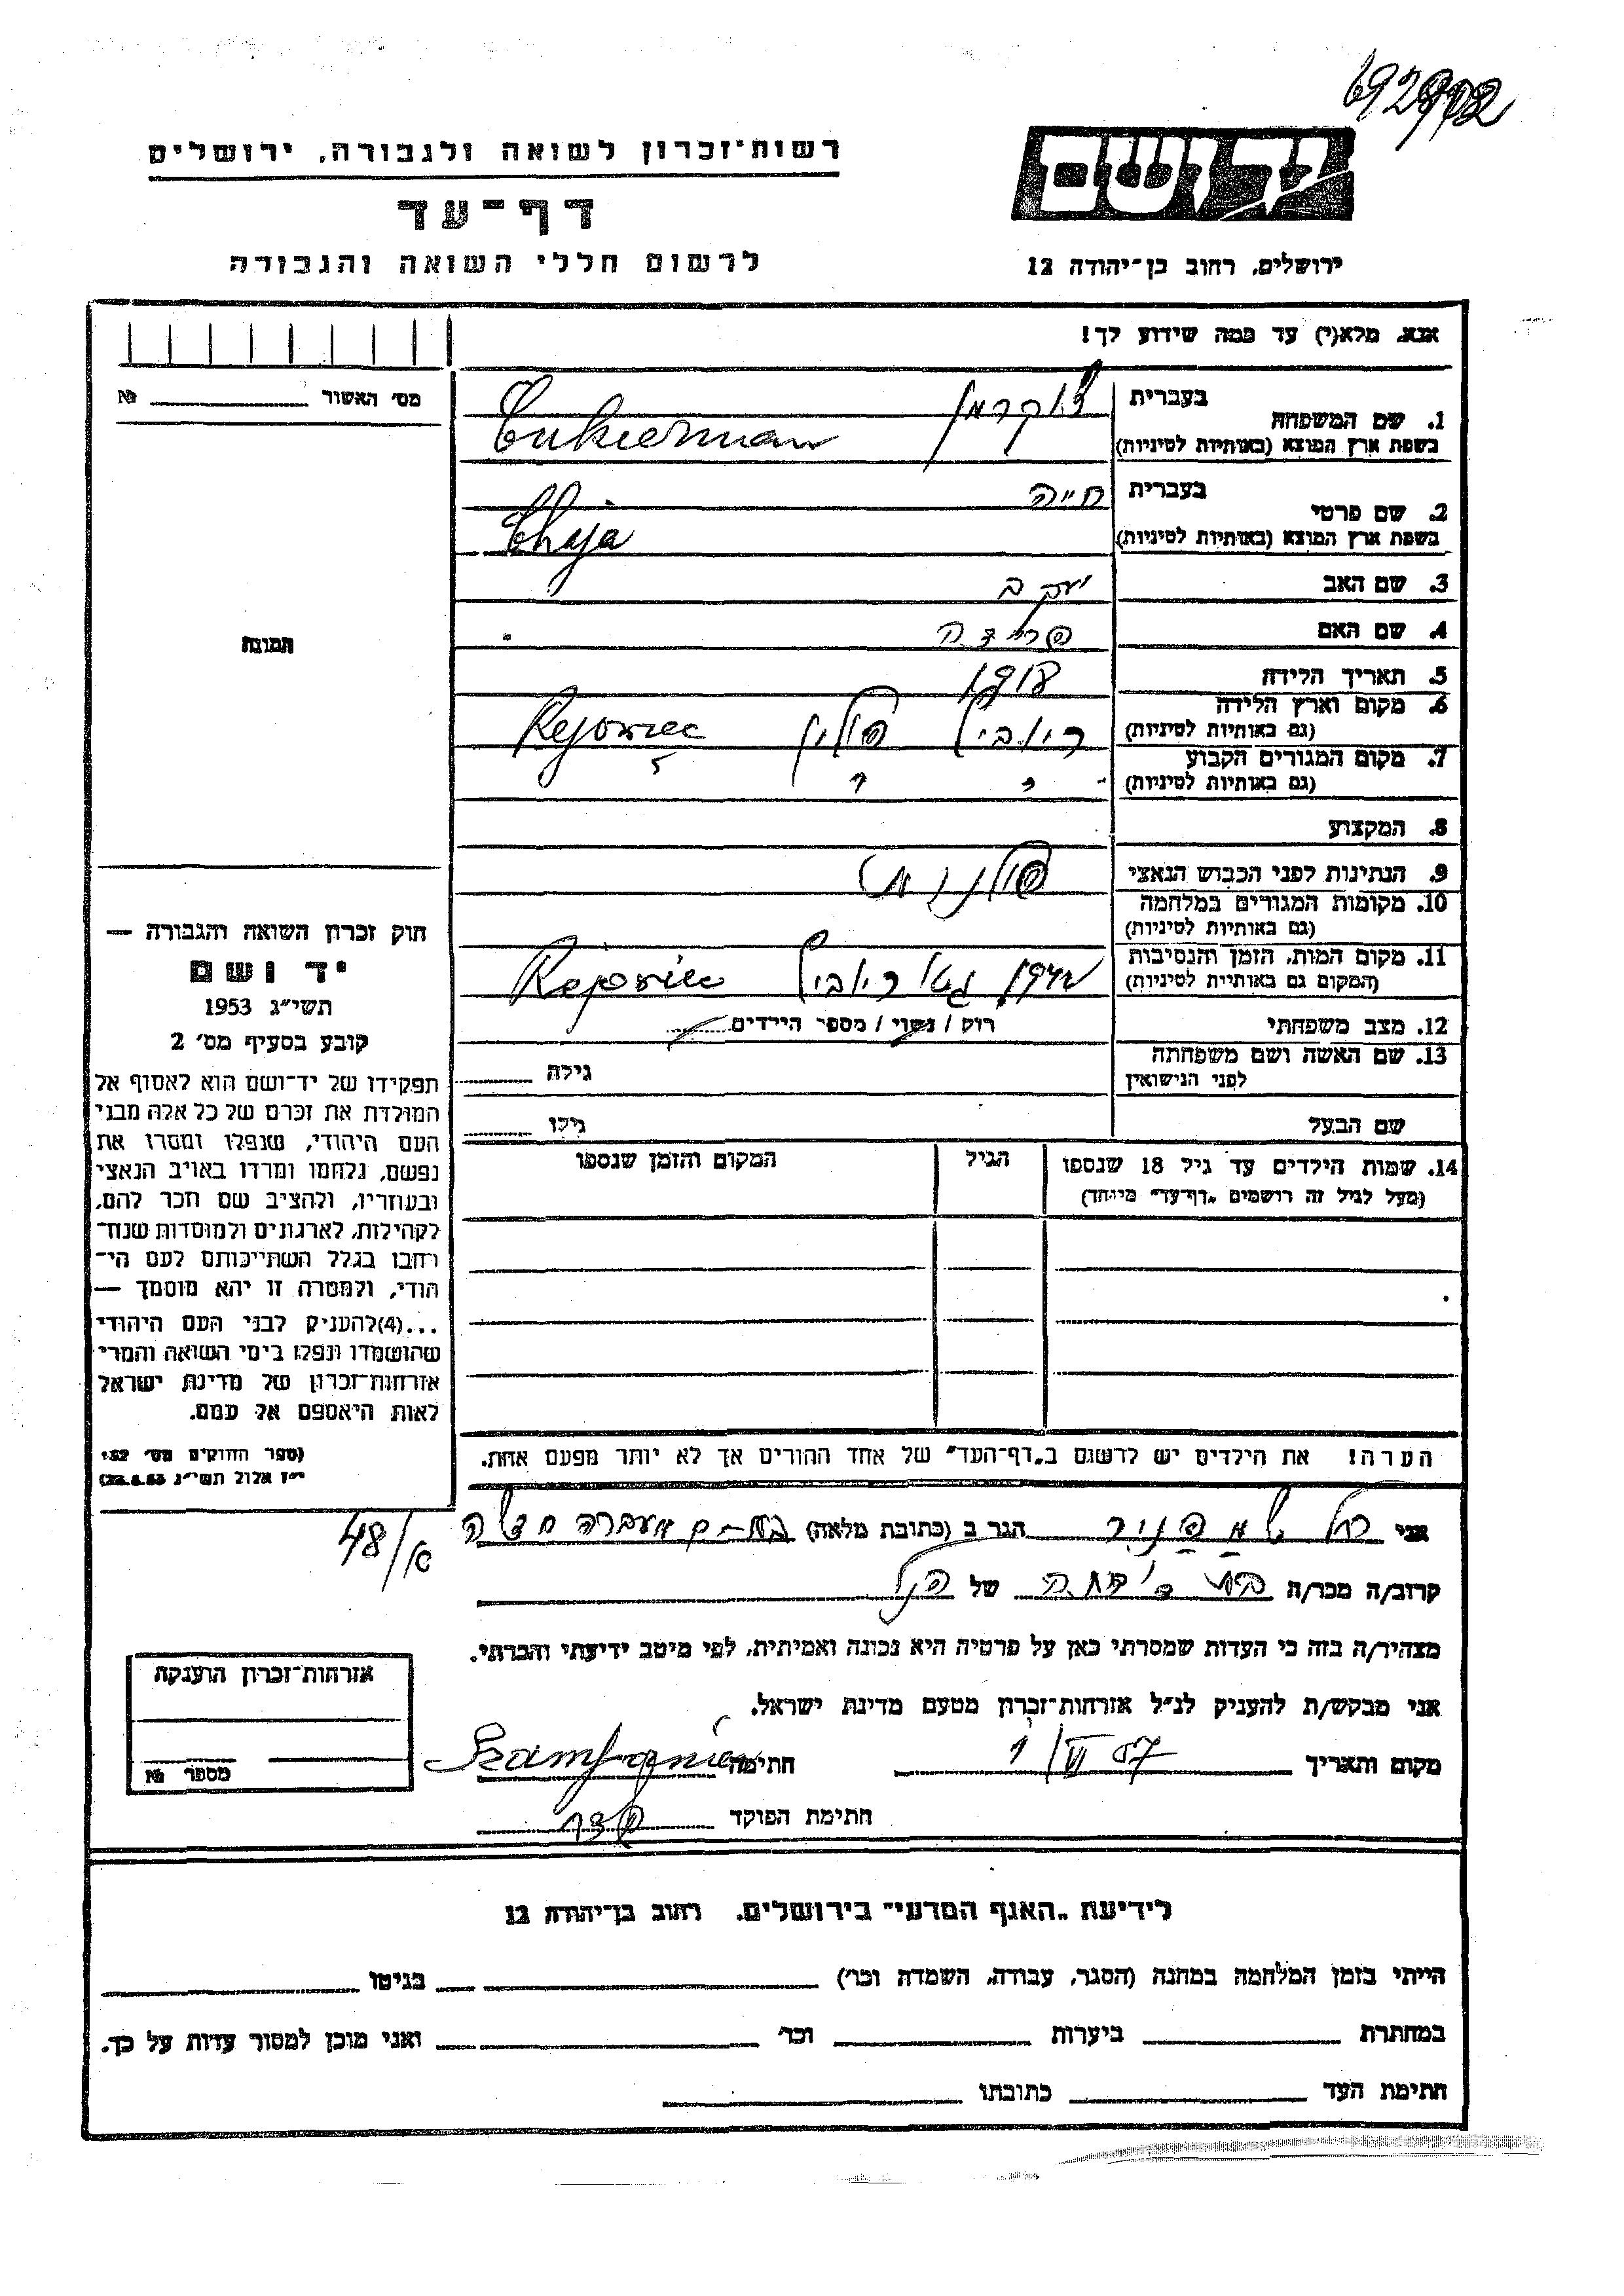 רשות-זכרון לשואה ולגבורה, ירושלים
דף-עד
לרשום חללי השואה והגבורה
יד ושם
ירושלים, רחוב בן-יהודה 12
אנא, מלא(י) עד כמה שידוע לך!
מס' האשור №
תמונה
1. שם המשפחה
בעברית צוקרמן
בשפת ארץ המוצא (באותיות לטיניות) Cukierman
2. שם פרטי
בעברית חייה
בשפת ארץ המוצא (באותיות לטיניות) Chaja
3. שם האב יעקב
4. שם האם פרידה
5. תאריך הלידה
6. מקום וארץ הלידה
(גם באותיות לטיניות) ריוביץ פולין Rejowiec
7. מקום המגורים הקבוע
(גם באותיות לטיניות) " " "
8. המקצוע
9. הנתינות לפני הכבוש הנאצי פולנית
10. מקומות המגורים במלחמה
(גם באותיות לטיניות)
11. מקום המות, הזמן והנסיבות
(המקום גם באותיות לטיניות) גטו ריוביץ Rejowiec
12. מצב משפחתי רוק / נשוי / מספר הילדים
13. שם האשה ושם משפחתה
לפני הנישואין גילה
שם הבעל גילו
14. שמות הילדים עד גיל 18 שנספו
(מעל לגיל זה רושמים "דף-עד" מיוחד)
הגיל
המקום והזמן שנספו
הערה! את הילדים יש לרשום ב"דף-העד" של אחד ההורים אך לא יותר מפעם אחת.
חוק זכרון השואה והגבורה —
יד ושם
תשי"ג 1953
קובע בסעיף מס' 2
תפקידו של יד-ושם הוא לאסוף אל
המולדת את זכרם של כל אלה מבני
העם היהודי, שנפלו ומסרו את
נפשם, נלחמו ומרדו באויב הנאצי
ובעוזריו, ולהציב שם וזכר להם,
לקהילות, לארגונים ולמוסדות שנח-
רבו בגלל השתייכותם לעם הי-
הודי, ולמטרה זו יהא מוסמך —
...(4)להעניק לבני העם היהודי
שהושמדו ונפלו בימי השואה והמרי
אזרחות-זכרון של מדינת ישראל
לאות היאספם אל עמם.
(ספר החוקים מס' 132
י"ז אלול תשי"ג 28.8.53)
אני רחל שמפניר הגר ב (כתובת מלאה)
48/א
קרוב/ה מכר/ה בת דודה של הנ"ל
מצהיר/ה בזה כי העדות שמסרתי כאן על פרטיה היא נכונה ואמיתית, לפי מיטב ידיעתי והכרתי.
אני מבקש/ת להעניק לנ"ל אזרחות-זכרון מטעם מדינת ישראל.
מקום ותאריך 1/VI 57 חתימה Szampanier
חתימת הפוקד
אזרחות-זכרון הוענקה
מספר №
לידיעת "האגף המדעי" בירושלים, רחוב בן-יהודה 12
הייתי בזמן המלחמה במחנה (הסגר, עבודה, השמדה וכו') בגיטו
במחתרת ביערות וכו' ואני מוכן למסור עדות על כך.
חתימת העד כתובתו